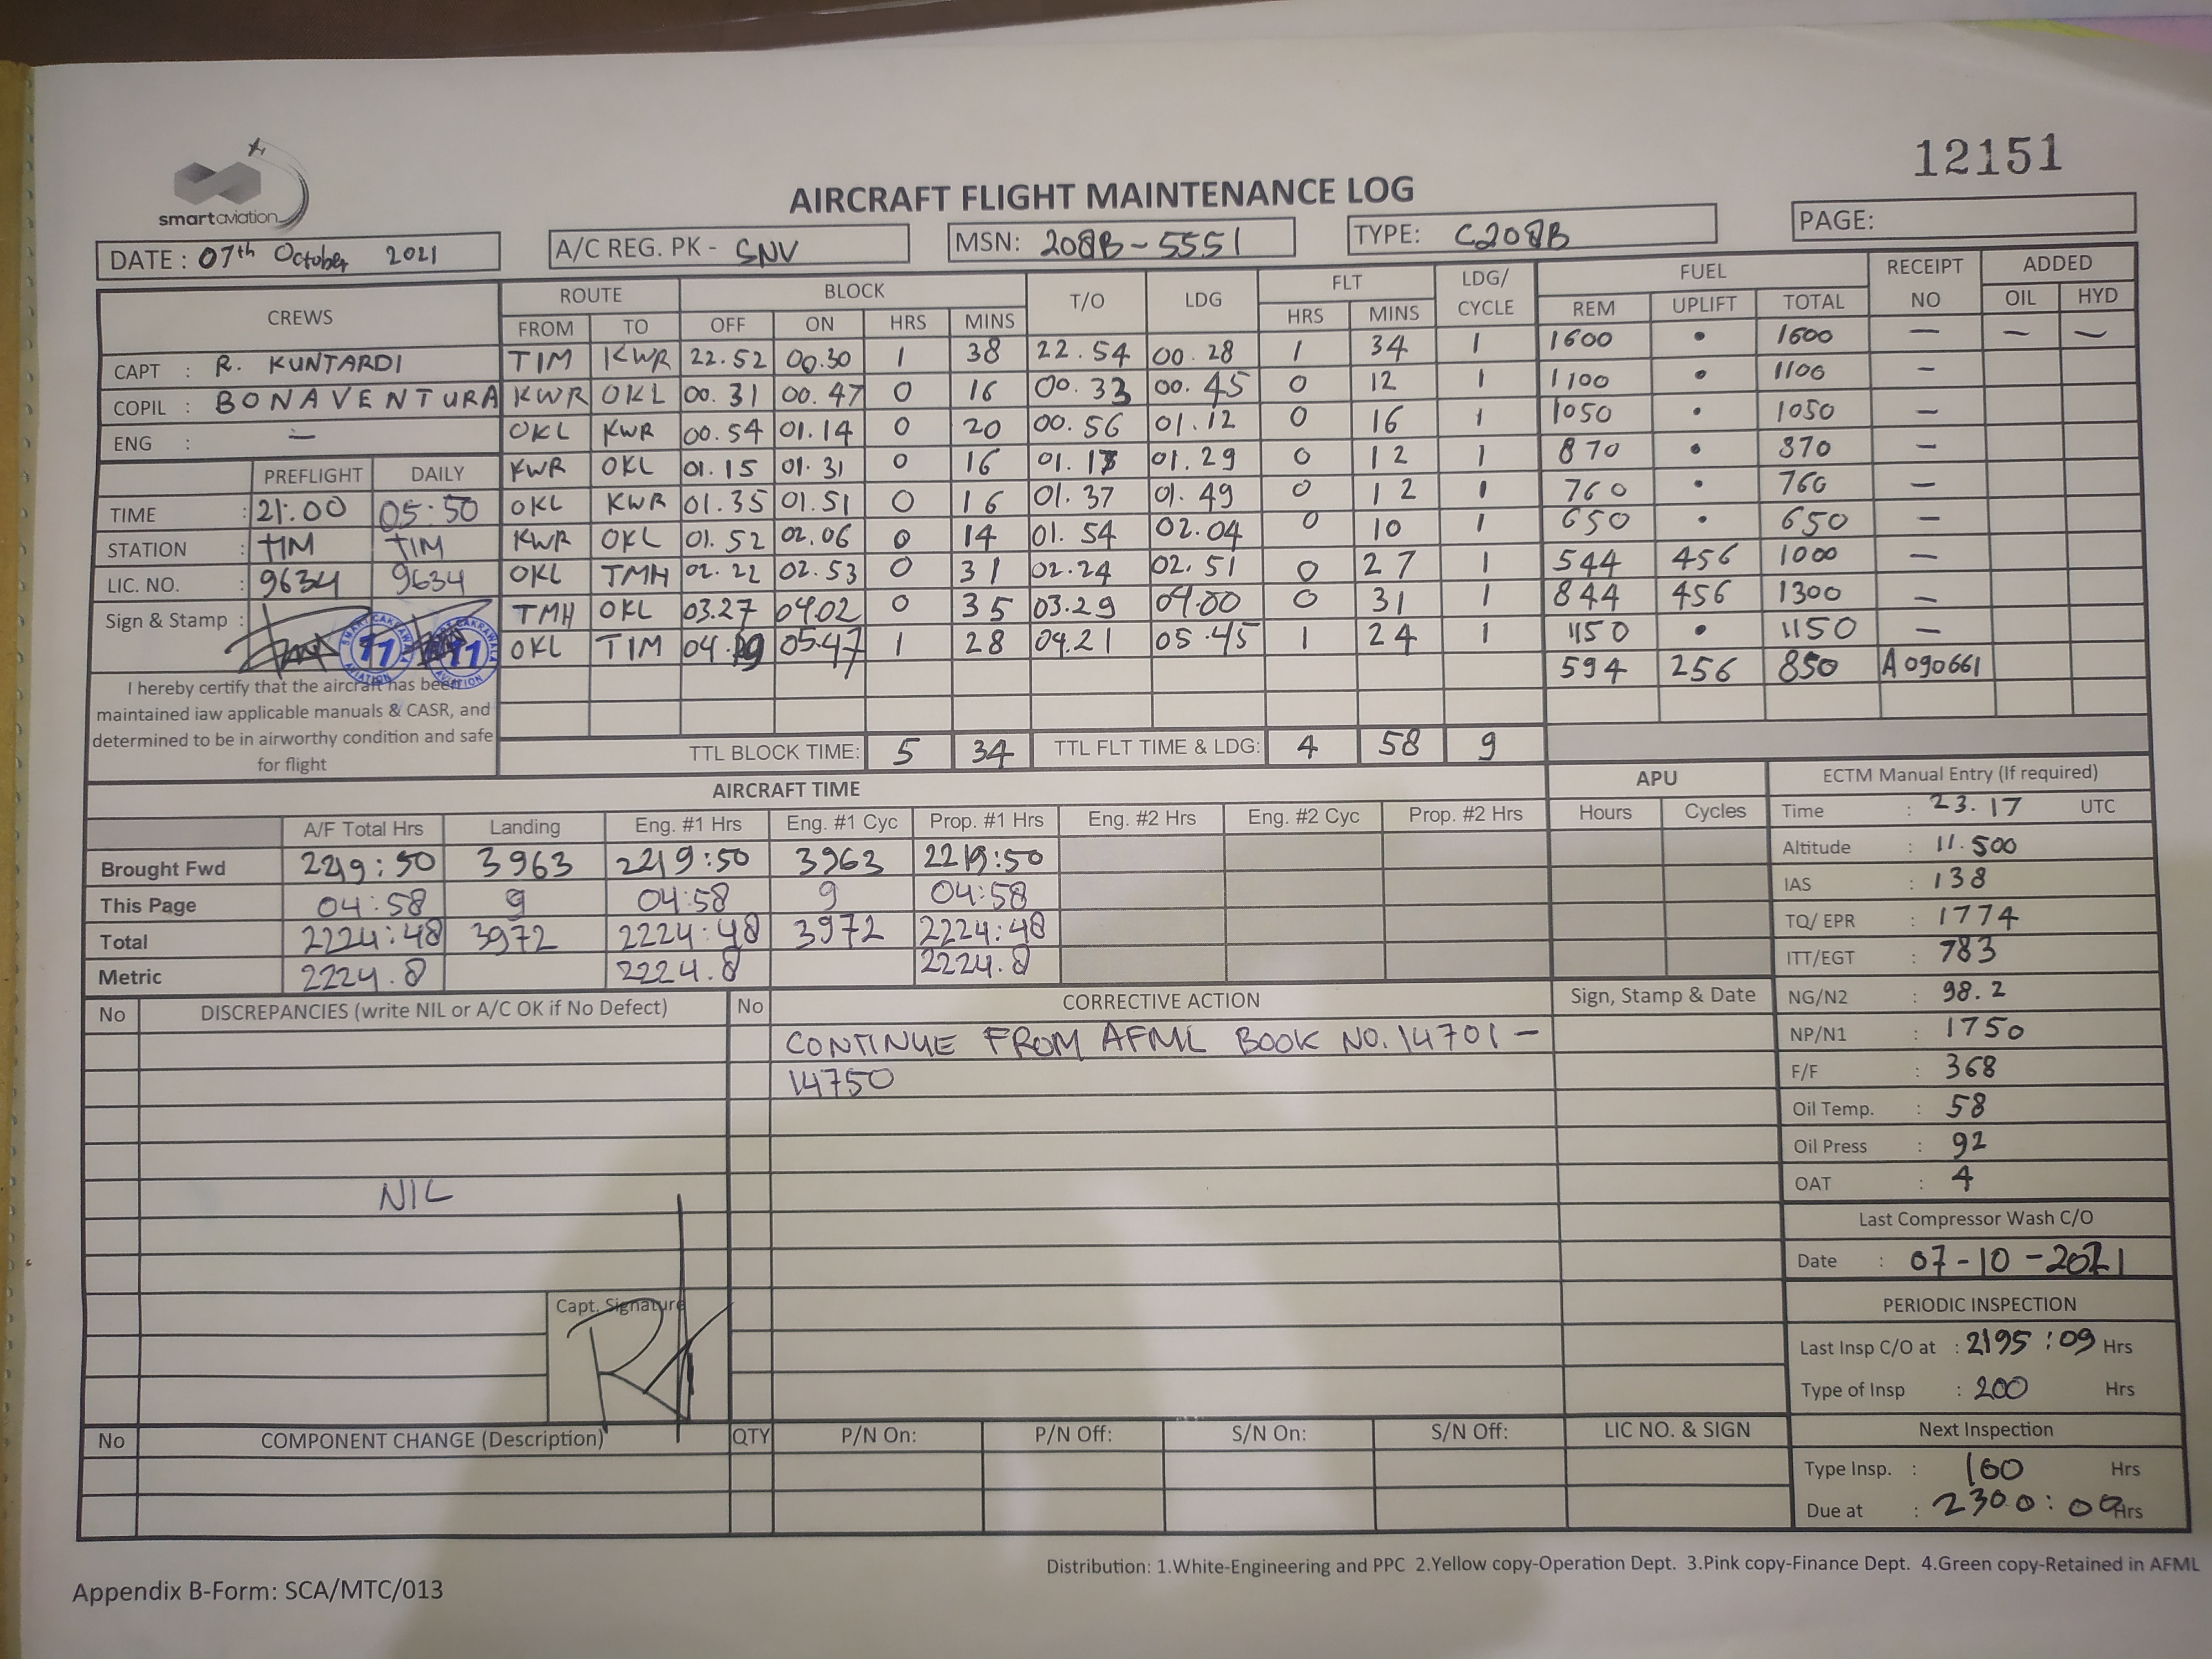 12151
smartaviation
AIRCRAFT FLIGHT MAINTENANCE LOG
DATE : 07th October 2021 A/C REG. PK - SNV MSN: 208B-5551 TYPE: C208B PAGE:
CREWS ROUTE BLOCK T/O LDG FLT LDG/ CYCLE FUEL RECEIPT NO ADDED
FROM TO OFF ON HRS MINS HRS MINS REM UPLIFT TOTAL OIL HYD
CAPT : R. KUNTARDI TIM KWR 22.52 00.30 1 38 22.54 00.28 1 34 1 1600 • 1600 — — —
COPIL : BONAVENTURA KWR OKL 00.31 00.47 0 16 00.33 00.45 0 12 1 1100 • 1100 —
ENG : — OKL KWR 00.54 01.14 0 20 00.56 01.12 0 16 1 1050 • 1050 —
PREFLIGHT DAILY KWR OKL 01.15 01.31 0 16 01.17 01.29 0 12 1 870 • 870 —
TIME : 21:00 05:50 OKL KWR 01.35 01.51 0 16 01.37 01.49 0 12 1 760 • 760 —
STATION : TIM TIM KWR OKL 01.52 02.06 0 14 01.54 02.04 0 10 1 650 • 650 —
LIC. NO. : 9634 9634 OKL TMH 02.22 02.53 0 31 02.24 02.51 0 27 1 544 456 1000 —
Sign & Stamp : TMH OKL 03.27 04.02 0 35 03.29 04.00 0 31 1 844 456 1300 —
OKL TIM 04.19 05.47 1 28 04.21 05.45 1 24 1 1150 • 1150 —
594 256 850 A090661
SMART CAKRAWALA AVIATION 11
SMART CAKRAWALA AVIATION 11
I hereby certify that the aircraft has been
maintained iaw applicable manuals & CASR, and
determined to be in airworthy condition and safe
for flight
TTL BLOCK TIME: 5 34 TTL FLT TIME & LDG: 4 58 9
AIRCRAFT TIME APU
A/F Total Hrs Landing Eng. #1 Hrs Eng. #1 Cyc Prop. #1 Hrs Eng. #2 Hrs Eng. #2 Cyc Prop. #2 Hrs Hours Cycles
Brought Fwd 2219:50 3963 2219:50 3963 2219:50
This Page 04:58 9 04:58 9 04:58
Total 2224:48 3972 2224:48 3972 2224:48
Metric 2224.8 2224.8 2224.8
ECTM Manual Entry (If required)
Time : 23.17 UTC
Altitude : 11.500
IAS : 138
TQ/ EPR : 1774
ITT/EGT : 783
NG/N2 : 98.2
NP/N1 : 1750
F/F : 368
Oil Temp. : 58
Oil Press : 92
OAT : 4
Last Compressor Wash C/O
Date : 07-10-2021
PERIODIC INSPECTION
Last Insp C/O at : 2195:09 Hrs
Type of Insp : 200 Hrs
Next Inspection
Type Insp. : 100 Hrs
Due at : 2300:00 Hrs
No DISCREPANCIES (write NIL or A/C OK if No Defect) No CORRECTIVE ACTION Sign, Stamp & Date
CONTINUE FROM AFML BOOK NO. 14701 -
14750
NIL
Capt. Signature
No COMPONENT CHANGE (Description) QTY P/N On: P/N Off: S/N On: S/N Off: LIC NO. & SIGN
Distribution: 1.White-Engineering and PPC 2.Yellow copy-Operation Dept. 3.Pink copy-Finance Dept. 4.Green copy-Retained in AFML
Appendix B-Form: SCA/MTC/013